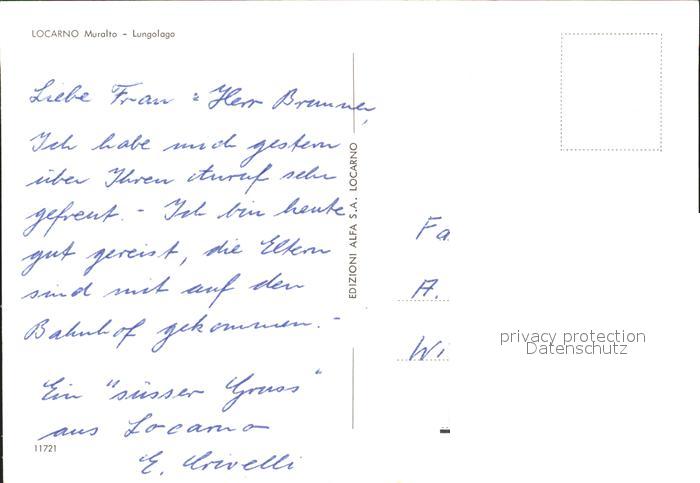 LOCARNO Muralto – Lungolago
Liebe Frau + Herr Brunner,
Ich habe mich gestern
über Ihren Anruf sehr
gefreut. - Ich bin heute
gut gereist, die Eltern
sind mit auf den
Bahnhof gekommen. -
Ein "süsser Gruss"
aus Locarno
E. Crivelli
11721
EDIZIONI ALFA S.A. LOCARNO
Fa
A.
Wi
privacy protection
Datenschutz